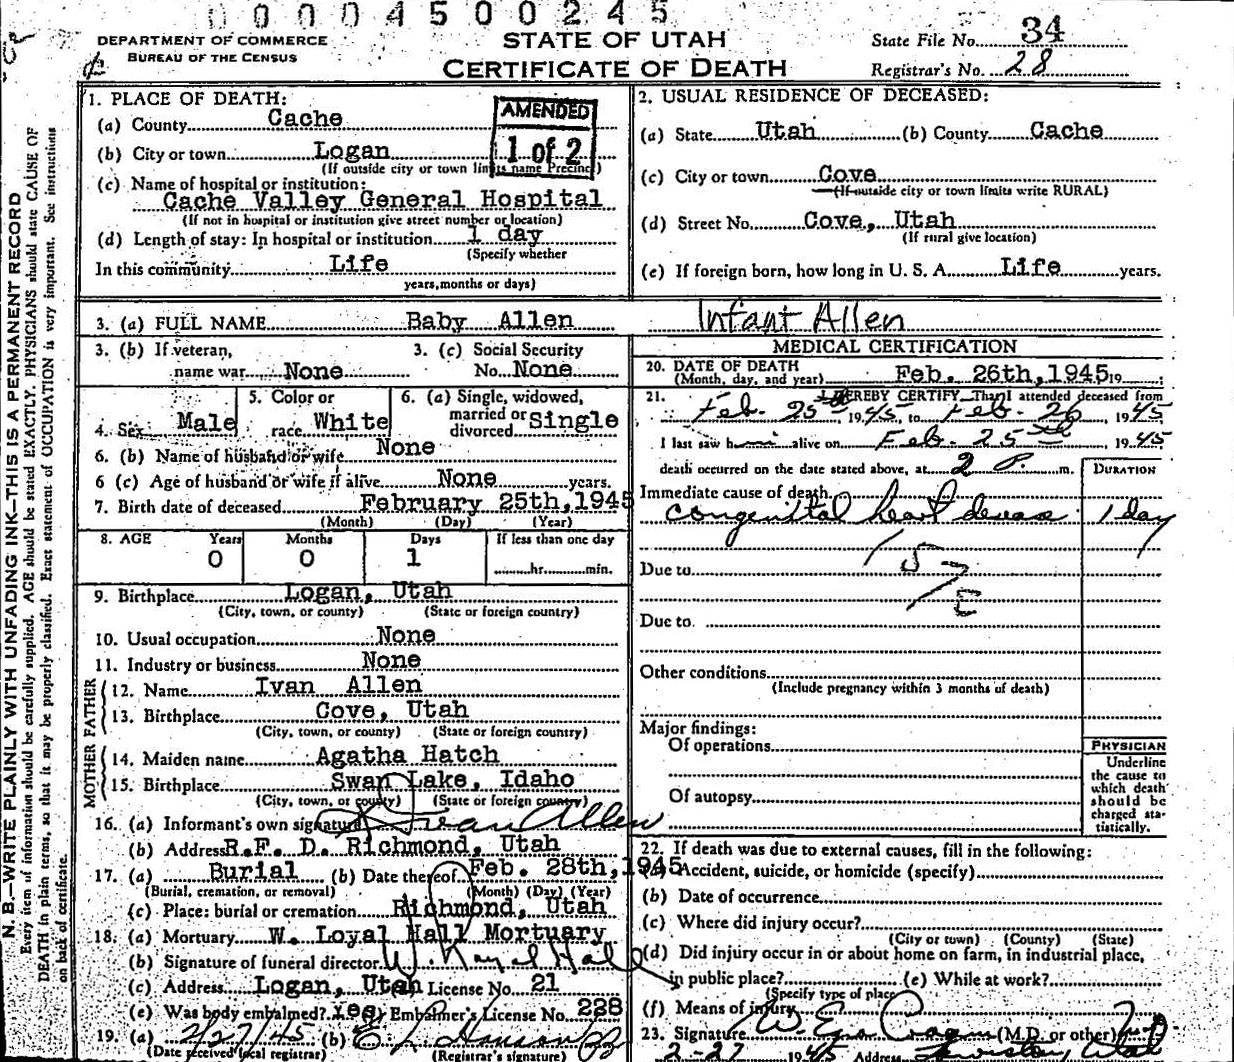 0 0 0 0 4 5 0 0 2 4 5
DEPARTMENT OF COMMERCE
BUREAU OF THE CENSUS
STATE OF UTAH
CERTIFICATE OF DEATH
State File No. 34
Registrar's No. 28
N. B.—WRITE PLAINLY WITH UNFADING INK—THIS IS A PERMANENT RECORD
Every item of information should be carefully supplied. AGE should be stated EXACTLY. PHYSICIANS should state CAUSE OF
DEATH in plain terms, so that it may be properly classified. Exact statement of OCCUPATION is very important. See instructions
on back of certificate.
1. PLACE OF DEATH:
(a) County Cache
AMENDED
1 of 2
(b) City or town Logan
(If outside city or town limits name Precinct)
(c) Name of hospital or institution:
Cache Valley General Hospital
(If not in hospital or institution give street number or location)
(d) Length of stay: In hospital or institution 1 day
(Specify whether
In this community Life
years, months or days)
2. USUAL RESIDENCE OF DECEASED:
(a) State Utah (b) County Cache
(c) City or town Cove
(If outside city or town limits write RURAL)
(d) Street No. Cove, Utah
(If rural give location)
(e) If foreign born, how long in U. S. A. Life years.
3. (a) FULL NAME Baby Allen Infant Allen
3. (b) If veteran,
name war None
3. (c) Social Security
No. None
4. Sex Male
5. Color or
race White
6. (a) Single, widowed,
married or
divorced Single
6. (b) Name of husband or wife None
6 (c) Age of husband or wife if alive None years.
7. Birth date of deceased February 25th, 1945
(Month) (Day) (Year)
8. AGE Years Months Days If less than one day
0 0 1 hr. min.
9. Birthplace Logan, Utah
(City, town, or county) (State or foreign country)
10. Usual occupation None
11. Industry or business None
FATHER
12. Name Ivan Allen
13. Birthplace Cove, Utah
(City, town, or county) (State or foreign country)
MOTHER
14. Maiden name Agatha Hatch
15. Birthplace Swan Lake, Idaho
(City, town, or county) (State or foreign country)
16. (a) Informant's own signature Ivan Allen
(b) Address R.F. D. Richmond, Utah
17. (a) Burial (b) Date thereof Feb. 28th, 1945
(Burial, cremation, or removal) (Month) (Day) (Year)
(c) Place: burial or cremation Richmond, Utah
18. (a) Mortuary W. Loyal Hall Mortuary
(b) Signature of funeral director W. Loyal Hall
(c) Address Logan, Utah License No. 21
(e) Was body embalmed? Yes Embalmer's License No. 228
19. (a) 2/27/45 (b) E. L. Hanson
(Date received local registrar) (Registrar's signature)
MEDICAL CERTIFICATION
20. DATE OF DEATH
(Month, day, and year) Feb. 26th, 1945 19
21. I HEREBY CERTIFY, That I attended deceased from
Feb. 25th, 1945 to Feb. 26, 1945
I last saw him alive on Feb. 25th, 1945
death occurred on the date stated above, at 2 P. m.
DURATION
Immediate cause of death
congenital heart disease 1 day
Due to
157
E
Due to
Other conditions
(Include pregnancy within 3 months of death)
Major findings:
Of operations
Of autopsy
PHYSICIAN
Underline
the cause to
which death
should be
charged sta-
tistically.
22. If death was due to external causes, fill in the following:
(a) Accident, suicide, or homicide (specify)
(b) Date of occurrence
(c) Where did injury occur?
(City or town) (County) (State)
(d) Did injury occur in or about home on farm, in industrial place,
in public place? (e) While at work?
(Specify type of place)
(f) Means of injury
23. Signature W. (M.D. or other)
2-27 1945 Address Lewiston, Utah